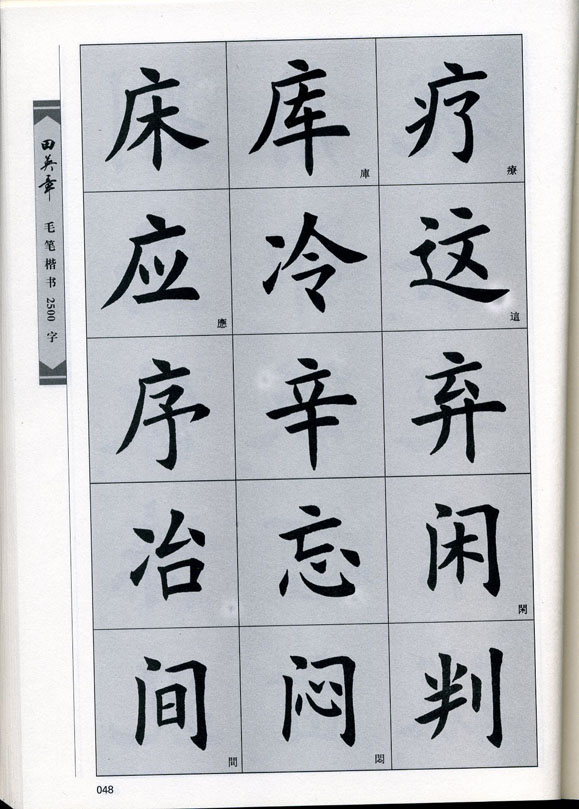 床 库 疗
庫 療
应 冷 这
應 這
序 辛 弃
冶 忘 闲
閑
间 闷 判
間 悶
田英章 毛笔楷书 2500 字
048